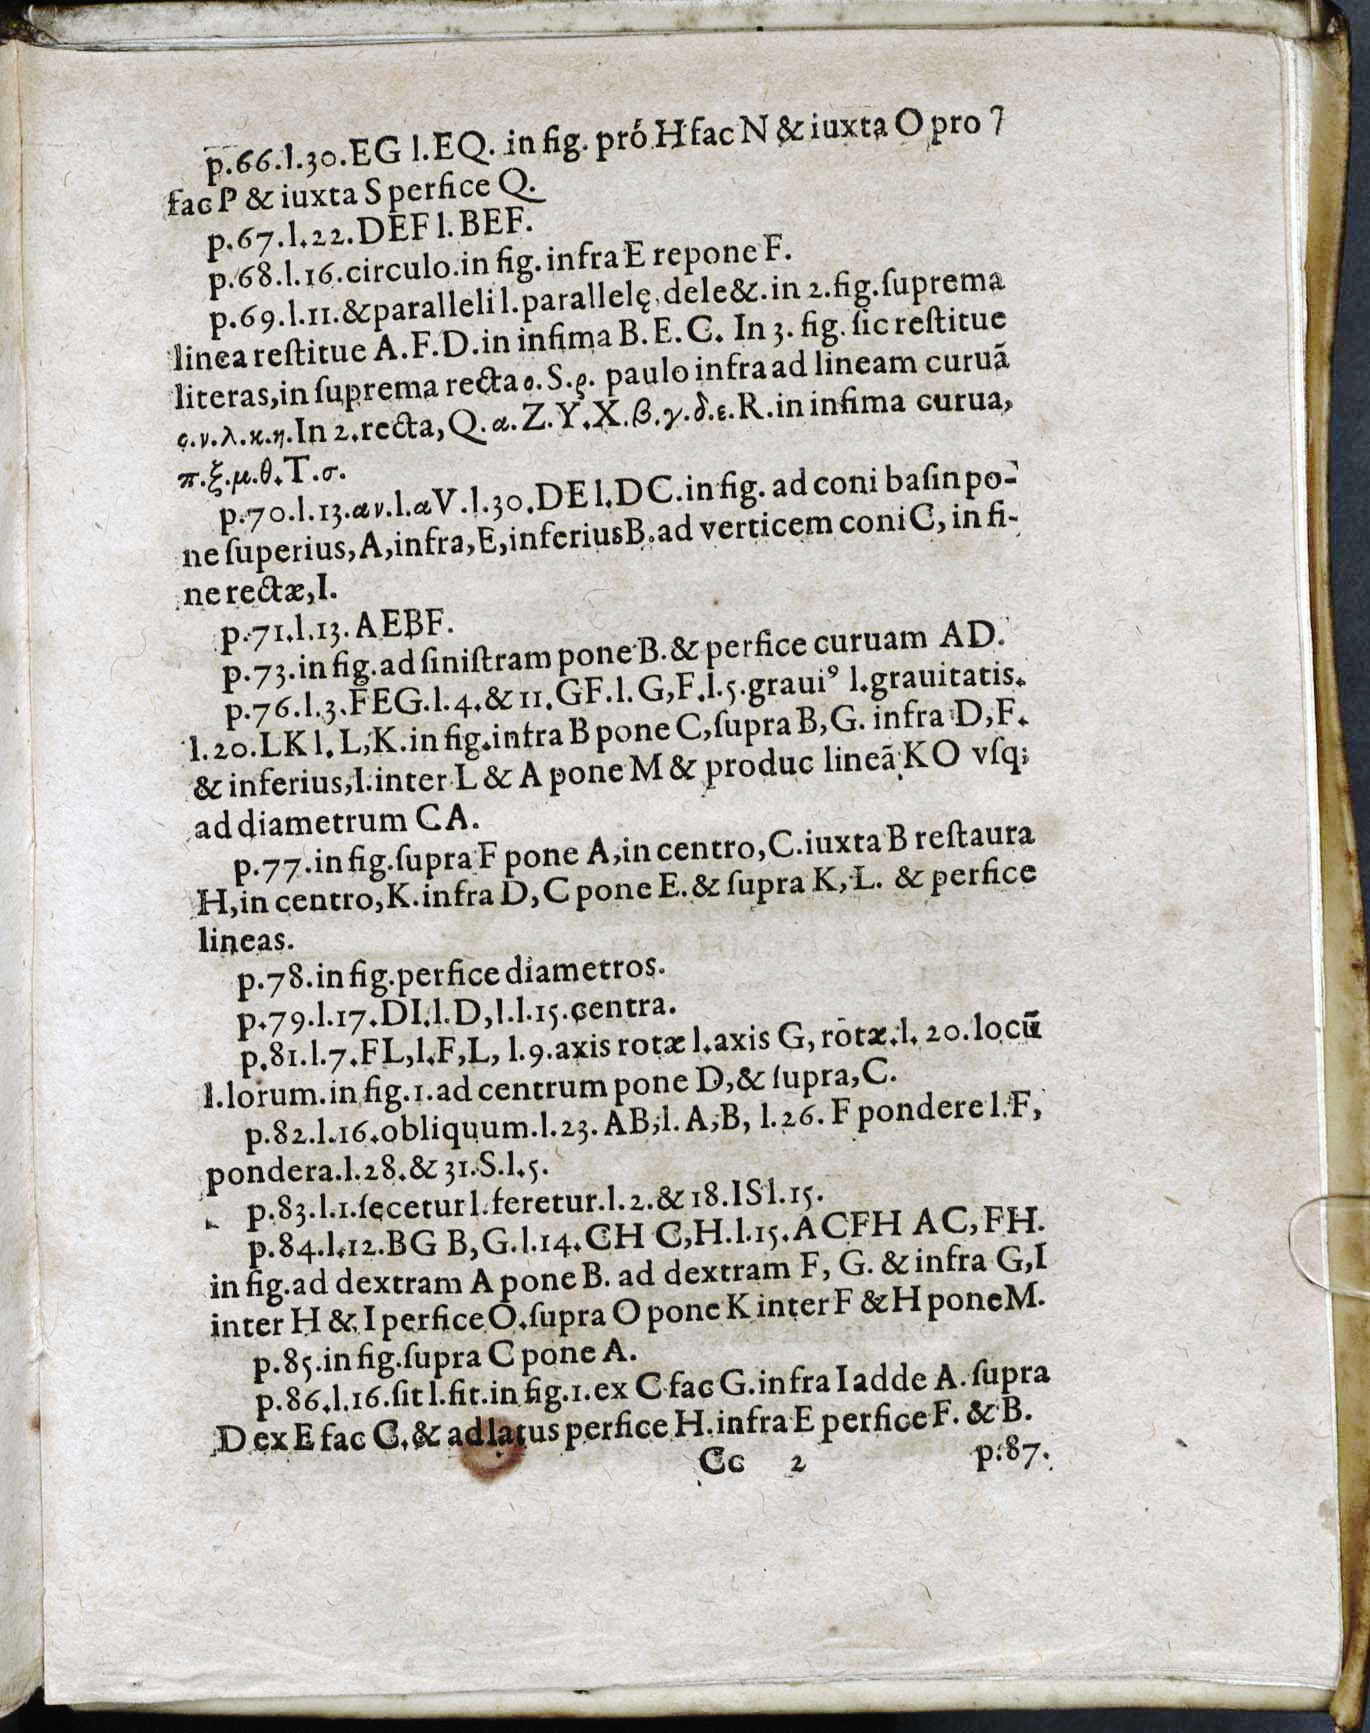 p.66.l.30.EG l.EQ. in fig. pró H fac N & iuxta O pro 7
fac P & iuxta S perfice Q.
p.67.l.22.DEF l.BEF.
p.68.l.16.circulo.in fig.infra E repone F.
p.69.l.11.&paralleli l.parallelę dele&.in 2.fig.ſuprema
linea reſtitue A.F.D.in infima B.E.C. In 3. fig. ſic reſtitue
literas,in ſuprema recta ο.S.ρ. paulo infra ad lineam curuã
ς.ν.λ.κ.η.In 2.recta,Q.α.Z.Y.X.β.γ.δ.ε.R.in infima curua,
π.ξ.μ.θ.T.σ.
p.70.l.13.αν.l.αV.l.30.DE l.DC.in fig. ad coni baſin po-
ne ſuperius,A,infra,E,inferiusB.ad verticem coni C, in fi-
ne rectæ,I.
p.71.l.13.AEBF.
p.73.in fig.ad ſiniſtram pone B.& perfice curuam AD.
p.76.l.3.FEG.l.4.& 11.GF.l.G,F.l.5.grauiꝰ l.grauitatis.
l.20.LK l.L,K.in fig.infra B pone C,ſupra B,G. infra D,F.
& inferius,I.inter L & A pone M & produc lineã KO vſq;
ad diametrum CA.
p.77.in fig.ſupra F pone A,in centro,C.iuxta B reſtaura
H,in centro,K.infra D,C pone E.& ſupra K,L. & perfice
lineas.
p.78.in fig.perfice diametros.
p.79.l.17.DI.l.D,l.l.15.centra.
p.81.l.7.FL,l.F,L, l.9.axis rotæ l.axis G, rotæ.l. 20.locũ
l.lorum.in fig.1.ad centrum pone D,& ſupra,C.
p.82.l.16.obliquum.l.23.AB;l.A;B, l.26.F pondere l.F,
pondera.l.28.& 31.S.l.5.
p.83.l.1.ſecetur l.feretur.l.2.& 18.IS l.15.
p.84.l.12.BG B,G.l.14.CH C,H.l.15.ACFH AC,FH.
in fig.ad dextram A pone B. ad dextram F, G. & infra G,I
inter H & I perfice O.ſupra O pone K inter F & H pone M.
p.85.in fig.ſupra C pone A.
p.86.l.16.ſit l.fit.in fig.1.ex C fac G.infra I adde A.ſupra
D ex E fac C.& ad latus perfice H.infra E perfice F. & B.
Cc 2 p.87.